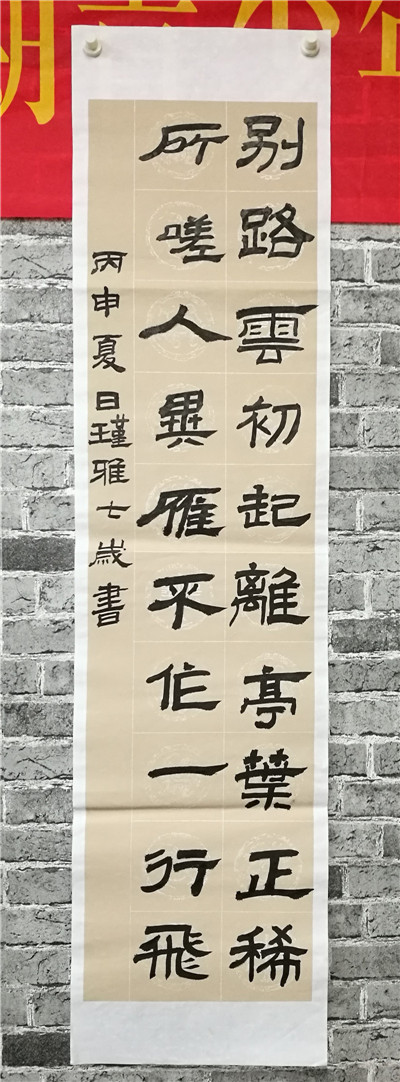 别路雲初起離亭葉正稀
所嗟人異雁不作一行飛
丙申夏日瑾雅七歲書